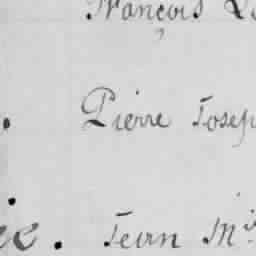 François
Pierre Josep
Jean M